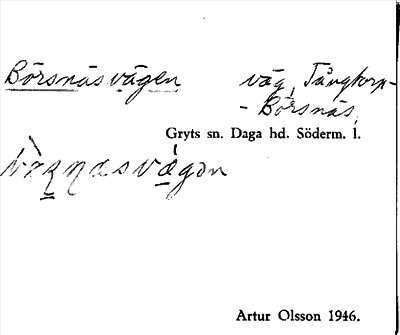 Börsnäsvägen väg, Tångtorp-
- Börsnäs,
Gryts sn. Daga hd. Söderm. l.
Artur Olsson 1946.